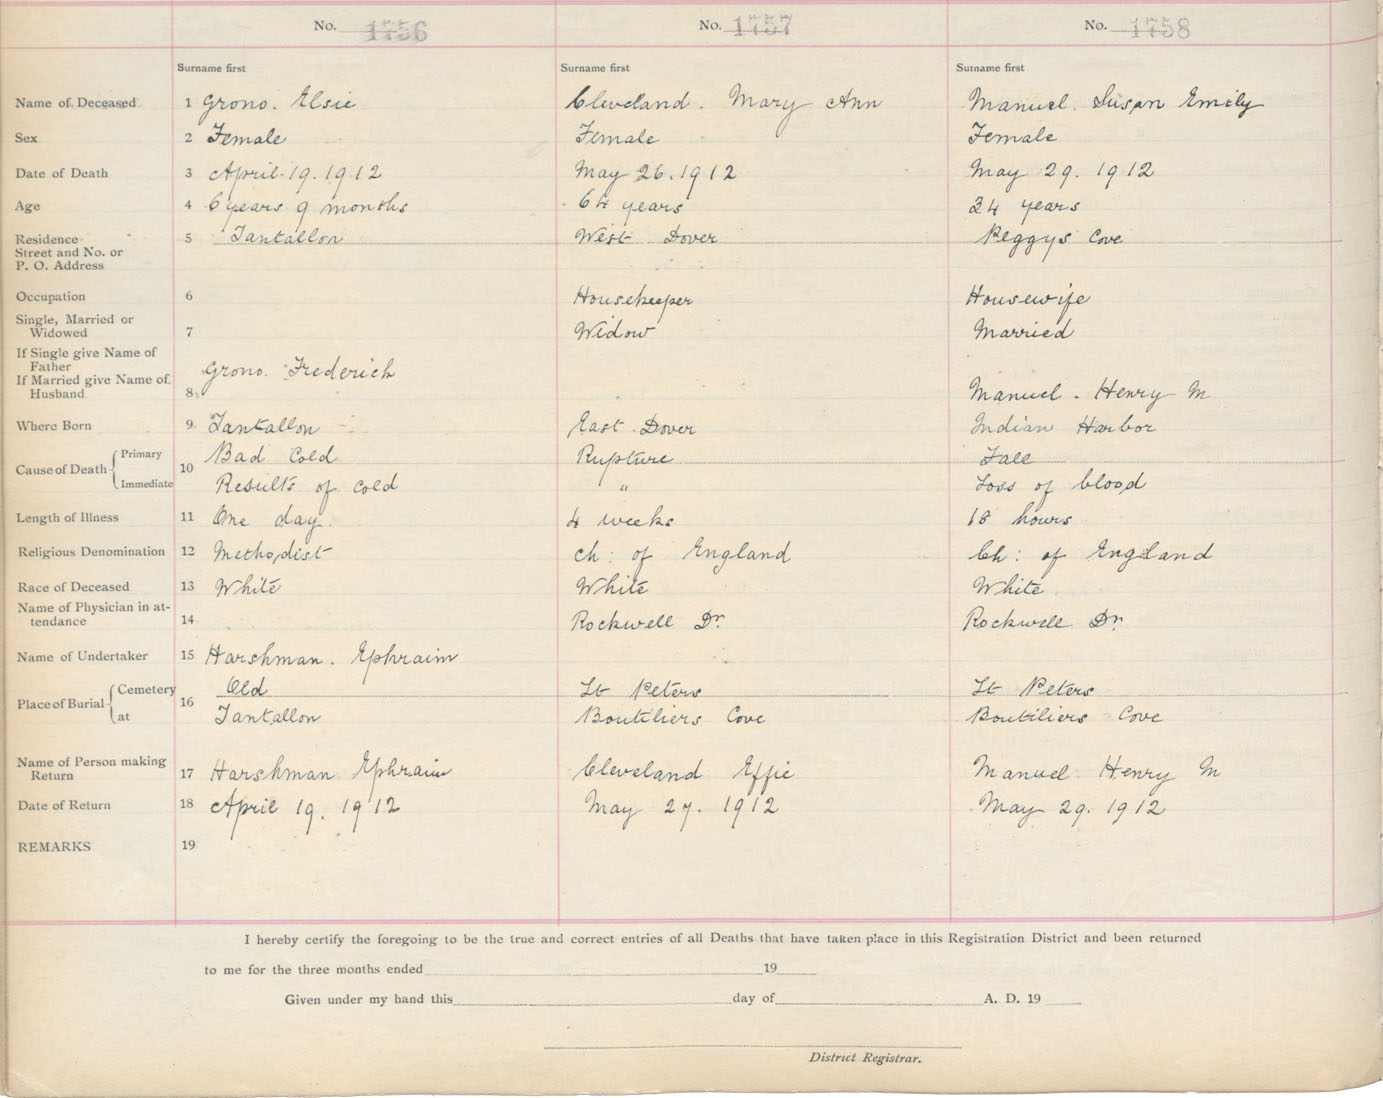 No. 1756 No. 1757 No. 1758
Surname first Surname first Surname first
Name of Deceased 1 Grono. Elsie Cleveland. Mary Ann Manuel. Susan Emily
Sex 2 Female Female Female
Date of Death 3 April. 19. 1912 May 26. 1912 May 29. 1912
Age 4 6 years 9 months 64 years 34 years
Residence 5 Tantallon West Dover Peggys Cove
Street and No. or
P. O. Address
Occupation 6 Housekeeper Housewife
Single, Married or
Widowed 7 Widow Married
If Single give Name of
Father Grono. Frederick
If Married give Name of
Husband 8 Manuel. Henry M
Where Born 9 Tantallon East Dover Indian Harbor
Primary Bad Cold Rupture Fall
Cause of Death 10
Immediate Results of cold " Loss of blood
Length of Illness 11 One day 4 weeks 18 hours
Religious Denomination 12 Methodist ch: of England Ch: of England
Race of Deceased 13 White White White
Name of Physician in at-
tendance 14 Rockwell Dr. Rockwell Dr.
Name of Undertaker 15 Harshman. Ephraim
Cemetery Old St Peters St Peters
Place of Burial 16
at Tantallon Boutiliers Cove Boutiliers Cove
Name of Person making
Return 17 Harshman Ephraim Cleveland Effie Manuel Henry M
Date of Return 18 April 19. 1912 May 27. 1912 May 29. 1912
REMARKS 19
I hereby certify the foregoing to be the true and correct entries of all Deaths that have taken place in this Registration District and been returned
to me for the three months ended 19
Given under my hand this day of A. D. 19
District Registrar.